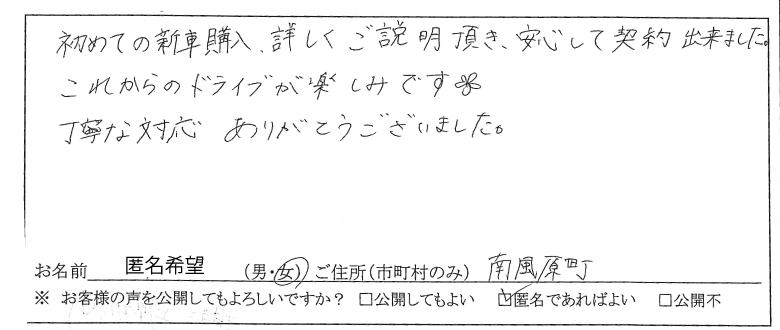 初めての新車購入、詳しくご説明頂き、安心して契約出来ました。
これからのドライブが楽しみです
丁寧な対応 ありがとうございました。
お名前 匿名希望 (男・女) ご住所(市町村のみ) 南風原町
※ お客様の声を公開してもよろしいですか? □公開してもよい ☑匿名であればよい □公開不